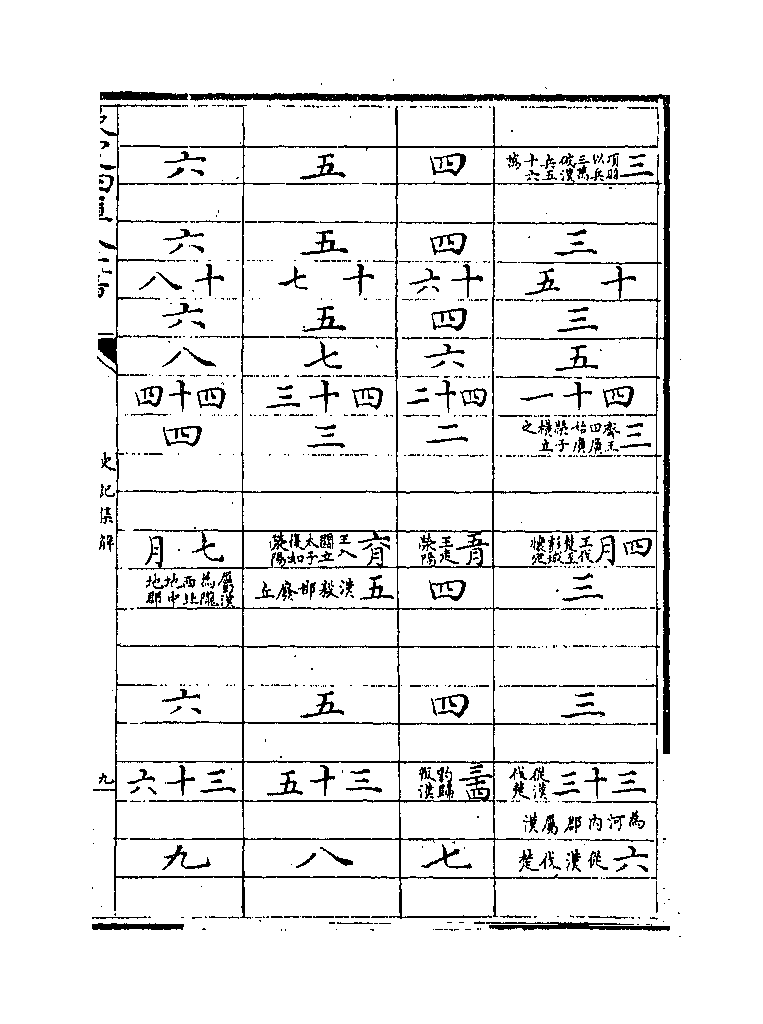 三 項羽以兵三萬破漢兵五十六萬
三
十五
三
五
四十一
三 齊王田廣始廣榮子橫立之
四月 王伐楚至彭城壞走
三
三
三十三 從漢伐楚
為河內郡屬漢
六 從漢伐楚
四
四
十六
四
六
四十二
二
五月 王走滎陽
四
四
三十四 豹歸叛漢
七
五
五
十七
五
七
四十三
三
六月 王入關立太子復如滎陽
五 漢殺邯廢丘
五
三十五
八
六
六
十八
六
八
四十四
四
七月
屬漢為隴西北地中地郡
六
三十六
九
史記集解
九